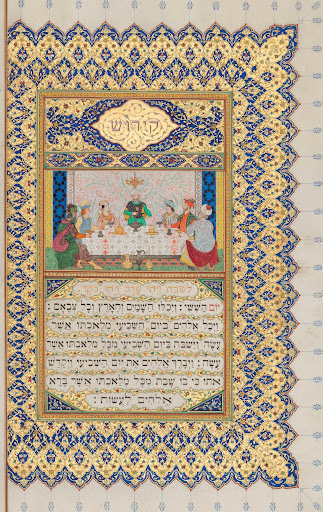 קידוש
יום הששי: ויכלו השמים והארץ וכל צבאם:
ויכל אלהים ביום השביעי מלאכתו אשר
עשה וישבת ביום השביעי מכל מלאכתו אשר
עשה: ויברך אלהים את יום השביעי ויקדש
אתו כי בו שבת מכל מלאכתו אשר ברא
אלהים לעשות: